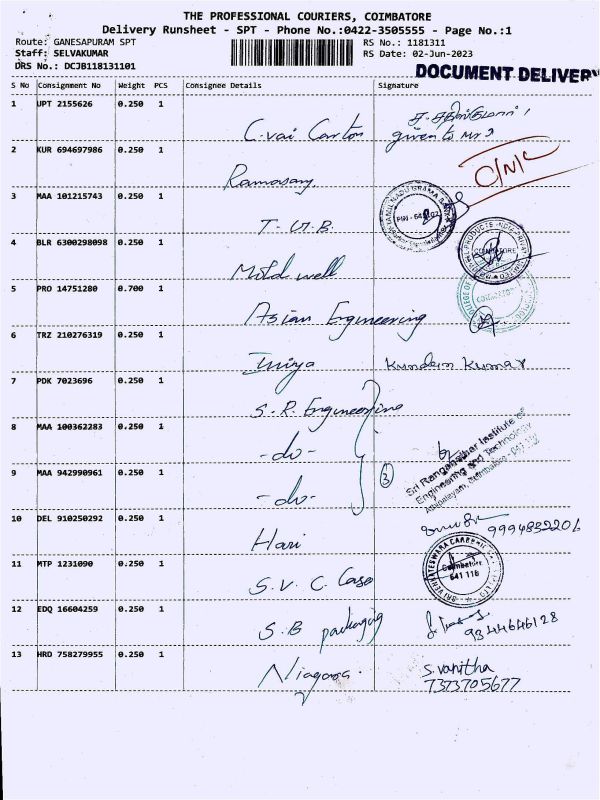 THE PROFESSIONAL COURIERS, COIMBATORE
Delivery Runsheet - SPT - Phone No.:0422-3505555 - Page No.:1
Route: GANESAPURAM SPT
RS No.: 1181311
Staff: SELVAKUMAR
RS Date: 02-Jun-2023
DRS No.: DCJB118131101
DOCUMENT DELIVERY
S No Consignment No Weight PCS Consignee Details Signature
1 UPT 2155626 0.250 1
C.vai Carton given to Mr
2 KUR 694697986 0.250 1
Ramasamy C/N/C
3 MAA 101215743 0.250 1
T.G.B. TAMIL NADU GRAMA BANK
4 BLR 6300298098 0.250 1
Mold well COIMBATORE
5 PRO 14751280 0.700 1
Asian Engineering
6 TRZ 210276319 0.250 1
Iniya Kundan Kumar
7 PDK 7023696 0.250 1
S.R. Engineering
8 MAA 100362283 0.250 1
-do-
Sri Ranganathar Institute of
Engineering and Technology
Athipalayam, Coimbatore - 641 110
9 MAA 942990961 0.250 1
-do- 3
10 DEL 910250292 0.250 1
Hari 9994832206
11 MTP 1231090 0.250 1
S.V.C. Case SRI VENKATESWARA Coimbatore 641 110
12 EDQ 16604259 0.250 1
S.B packaging 9344646128
13 HRO 758279955 0.250 1
Niagara. S.vanitha
7373705677